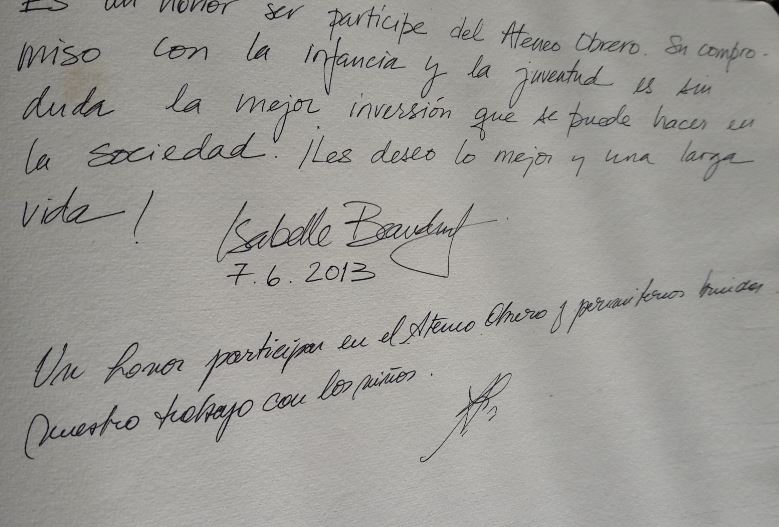 Es un honor ser partícipe del Ateneo Obrero. Su compro-
miso con la infancia y la juventud es sin
duda la mejor inversión que se puede hacer en
la sociedad. ¡Les deseo lo mejor y una larga
vida!
Isabelle
7.6.2013
Un honor participar en el Ateneo Obrero y permitirnos
nuestro trabajo con los niños.